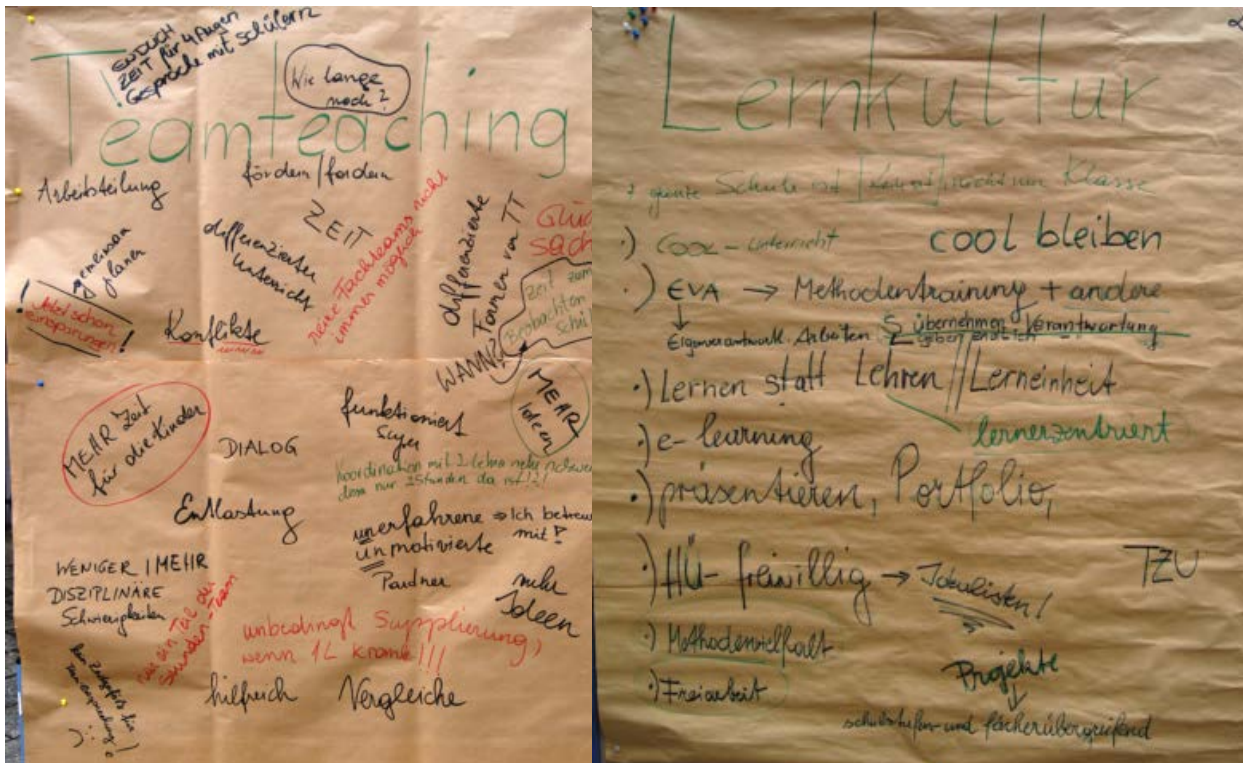 ENDLICH
ZEIT für 4 Augen
Gespräche mit Schülern
Wie lange
noch?
Teamteaching
Arbeitsteilung
fördern/fordern
ZEIT
differenzierter
Unterricht
reine Fachteams nicht
immer möglich
differenzierte
Formen von TT
WANN?
Zeit zum
Beobachten
gemeinsam
planen
! Jetzt schon
einsparungen !
Konflikte
MEHR Zeit
für die Kinder
DIALOG
funktioniert
super
MEHR
Ideen
Koordination mit 2 Lehrn
nur 2 Stunden da ist!?!
Entlastung
unerfahrene ⇒ Ich
unmotivierte mit
Partner
WENIGER / MEHR
DISZIPLINÄRE
Schwierigkeiten
mehr
Ideen
nur ein Teil der
Stunden-Team
unbedingt Supplierung,
wenn 1L krank!!!
hilfreich
Vergleiche
Lernkultur
Schule ist nicht nur Klasse
·) COOL - Unterricht
cool bleiben
·) EVA → Methodentraining + andere
Eigenverantwortl. Arbeiten
übernehmen Verantwortung
geben endlich
·) Lernen statt Lehren // Lerneinheit
lernerzentriert
·) e-learning
·) präsentieren, Portfolio,
·) HÜ- freiwillig → Idealisten!
TZU
·) Methodenvielfalt
·) Freiarbeit
Projekte
schulstufen- und fächerübergreifend